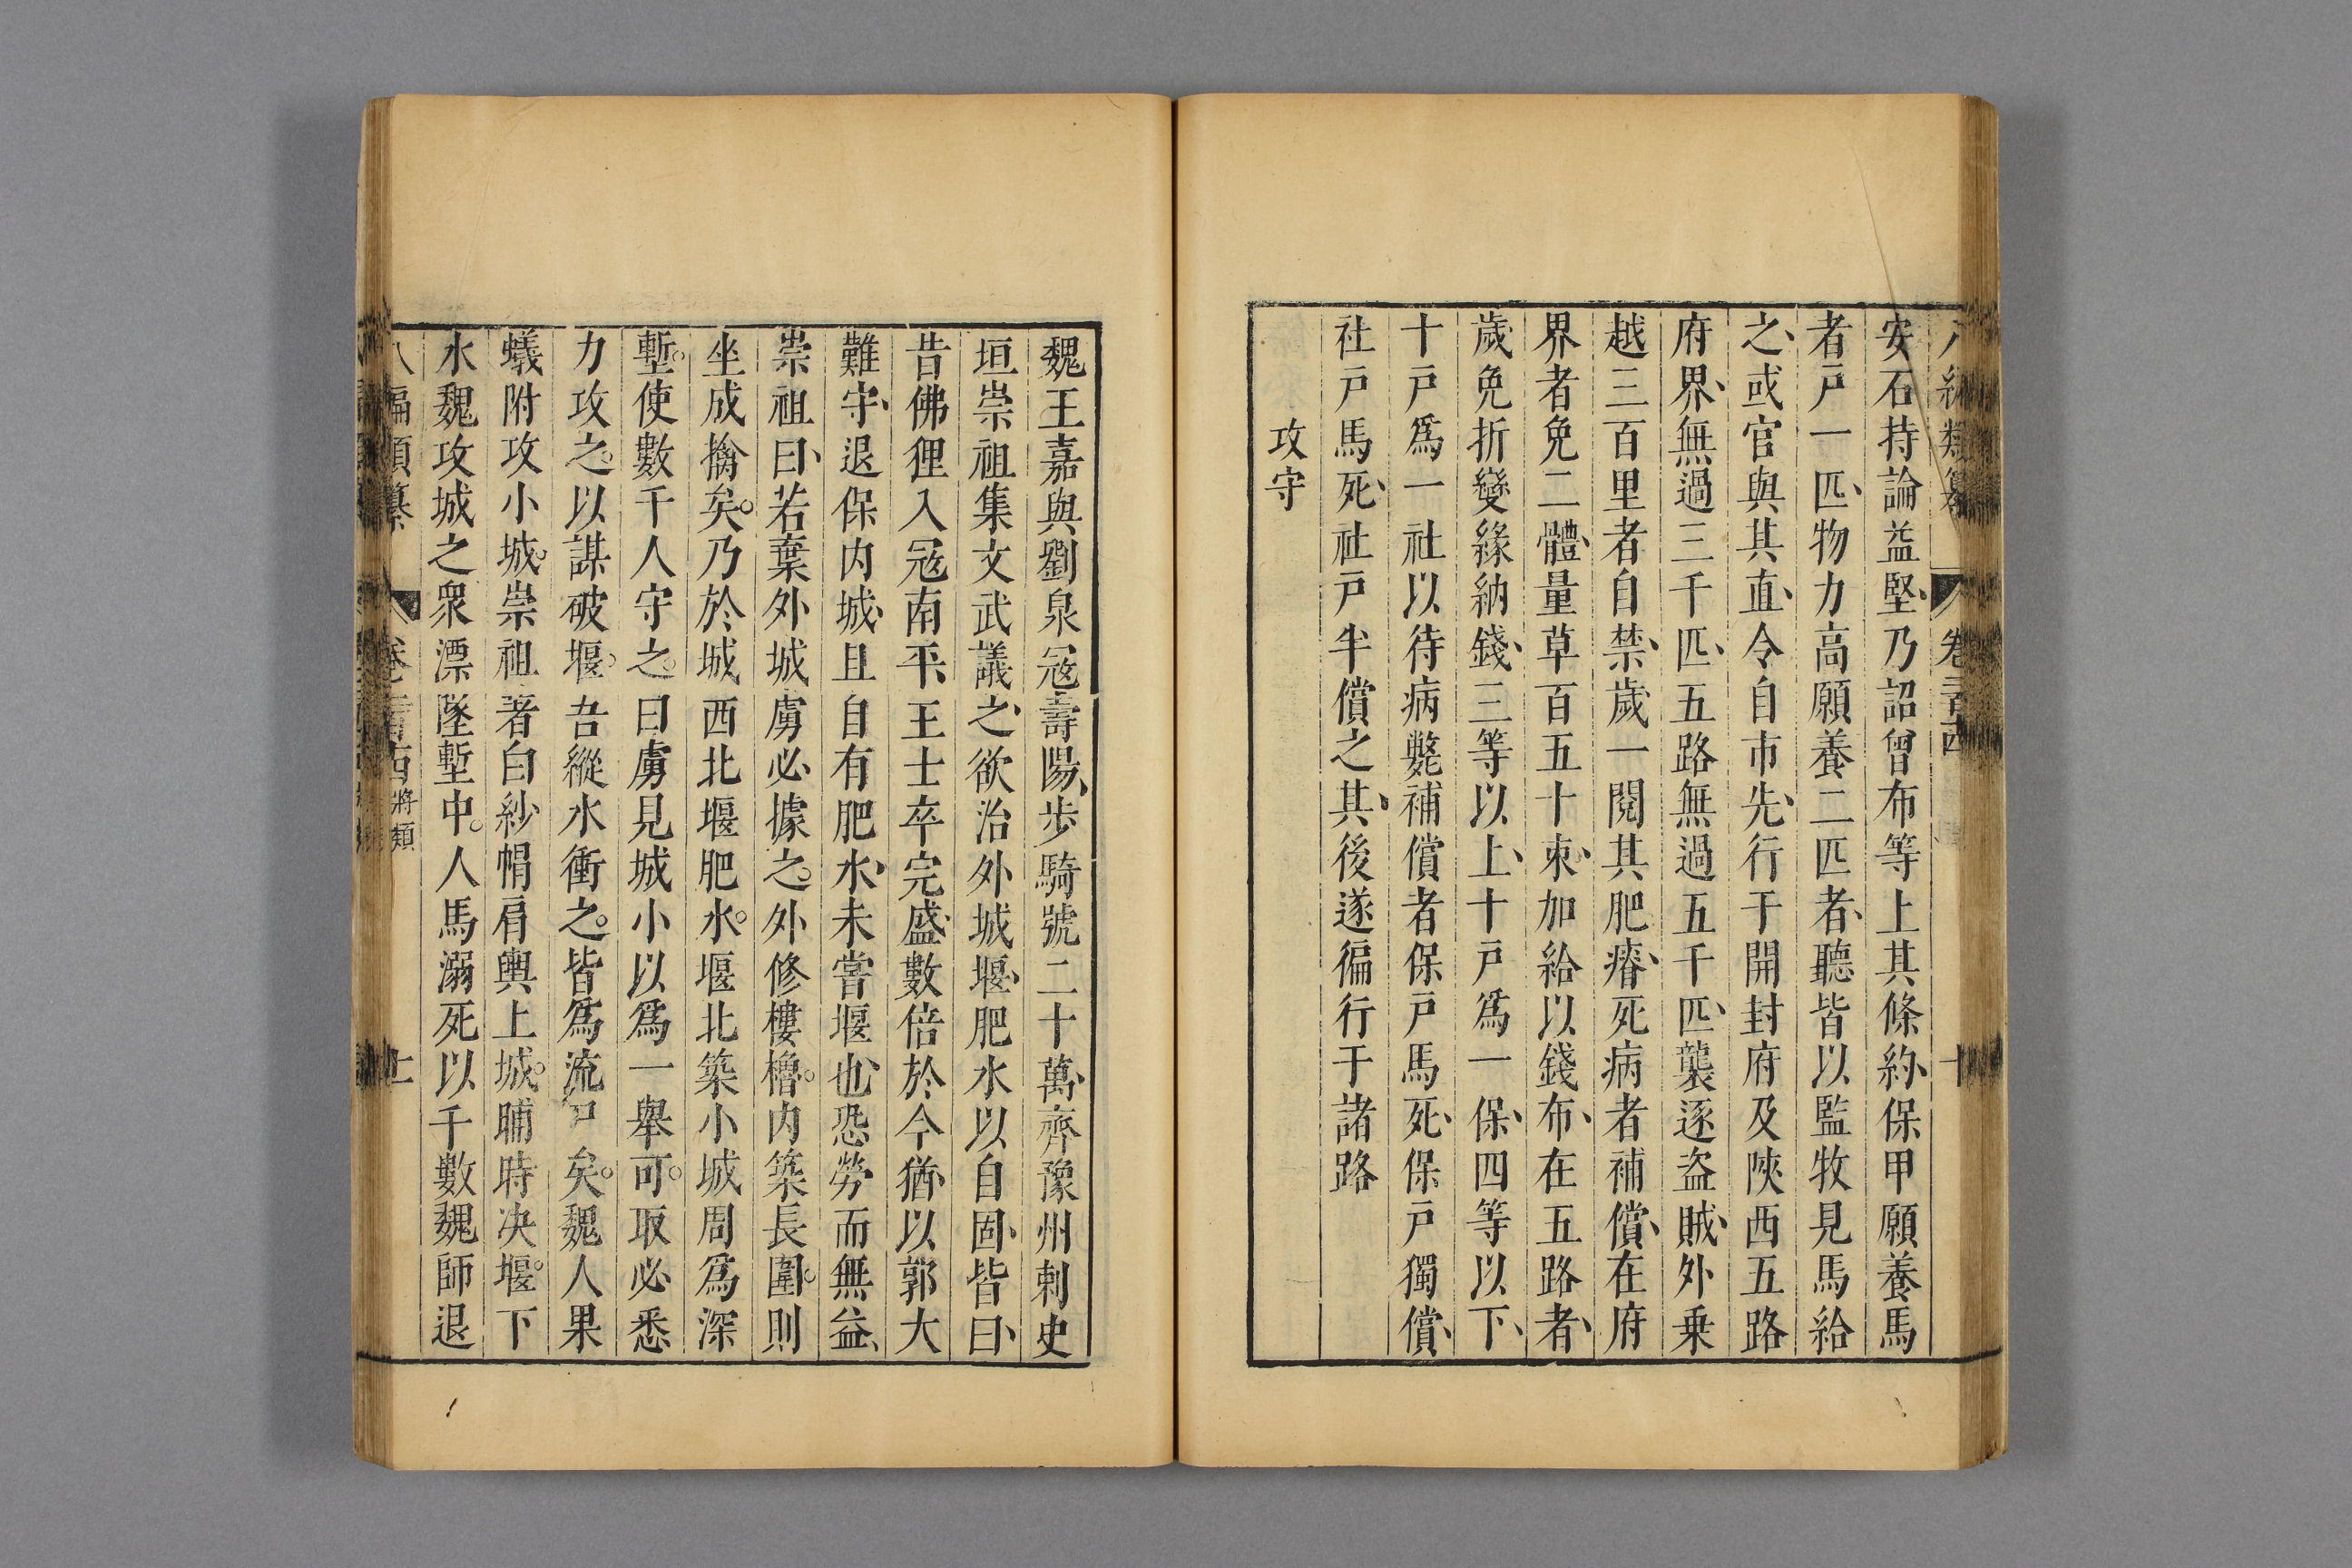 安石持論益堅、乃詔曾布等上其條約、保甲願養馬
者戸一匹、物力高願養二匹者、聽皆以監牧見馬給
之、或官與其直、令自市先、行于開封府及陝西五路
府界、無過三千匹、五路無過五千匹、襲逐盗賊、外乗
越三百里者自禁、歲一閱其肥瘠、死病者補償、在府
界者免二體、量草百五十束、加給以錢布、在五路者、
歲免折變緣納錢、三等以上、十戸爲一保、四等以下、
十戸爲一社以待病斃補償者保戸馬死、保戸獨償、
社戸馬死、社戸半償之其、後遂徧行于諸路
攻守
魏王嘉與劉泉冦壽陽、步騎號二十萬、齊豫州刺史
垣崇祖集文武議之、欲治外城、堰肥水以自固、皆曰、
昔佛狸入冦南平、王士卒完盛、數倍於今、猶以郭大
難守、退保内城、且自有肥水、未嘗堰也、恐勞而無益、
崇祖曰、若棄外城、虜必據之。外修樓櫓。内築長圍。則
坐成擒矣。乃於城西北堰肥水。堰北築小城周爲深
塹。使數千人守之。曰虜見城小以爲一舉可。取必悉
力攻之。以謀破堰。吾縱水衝之。皆爲流尸矣。魏人果
蟻附攻小城。崇祖著白紗帽肩輿上城。晡時决堰。下
水魏攻城之衆漂墜塹中。人馬溺死以千數魏師退
八編類纂 將類